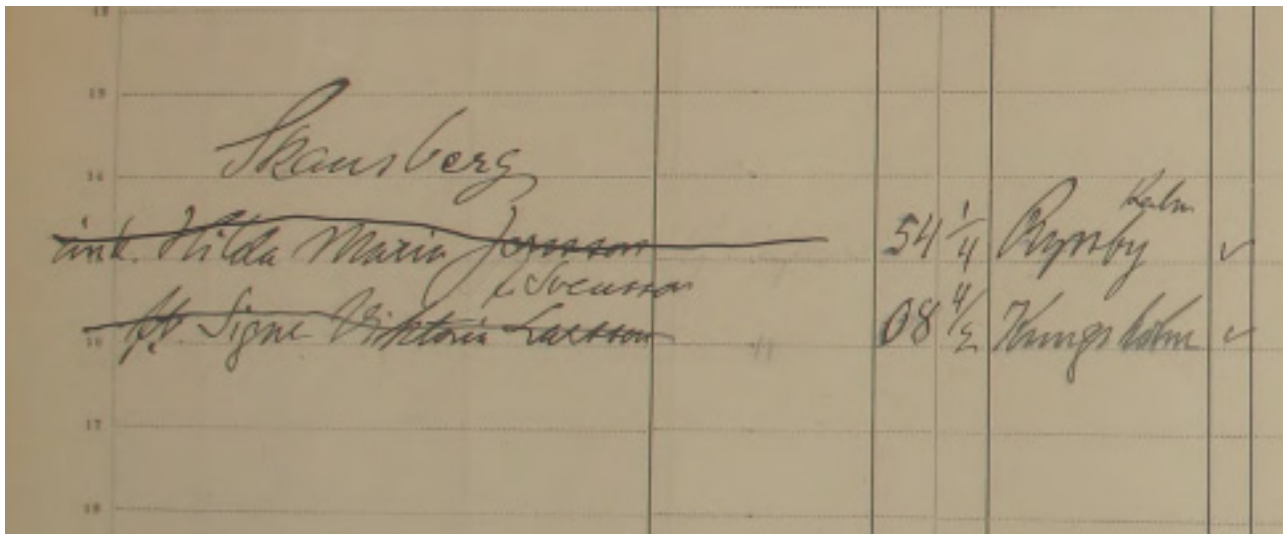 13
Skansberg
14
Kalm.
änk. Hilda Maria Jonsson 54 1/4 Ryssby ✓
f. Svensson
fb. Signe Viktoria Larsson 08 4/2 Kungsholm ✓
16
17
18